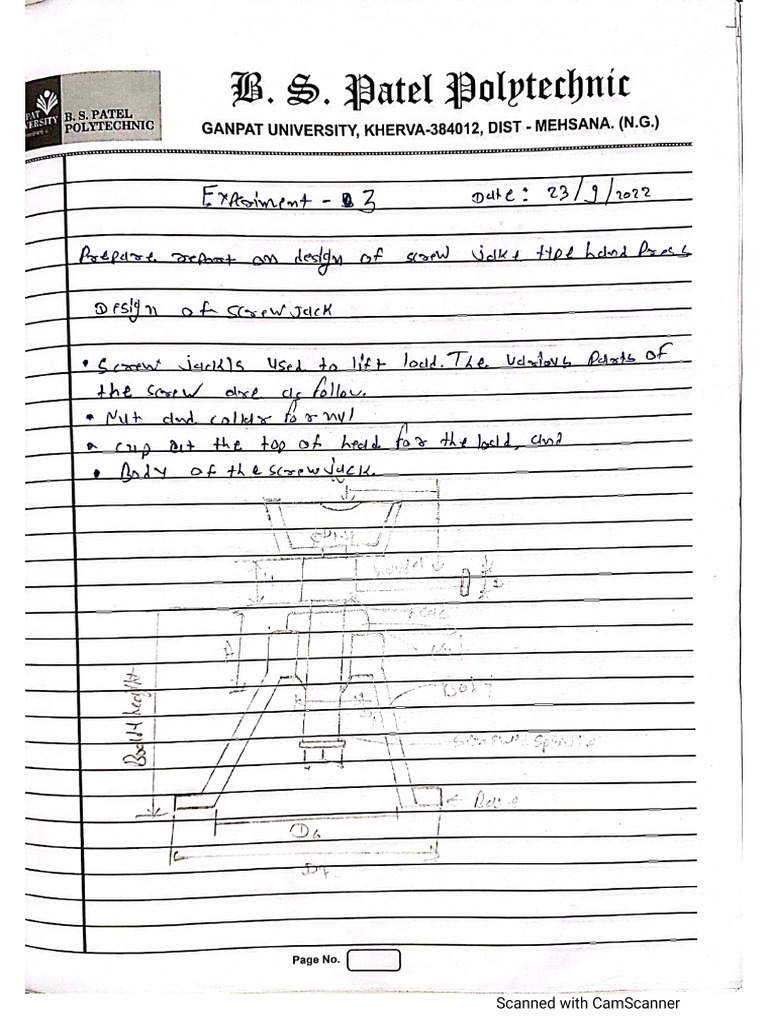 B. S. Patel Polytechnic
B. S. PATEL
POLYTECHNIC
GANPAT UNIVERSITY, KHERVA-384012, DIST - MEHSANA. (N.G.)
Expriment - 3
Date: 23/9/2022
Prepare report on design of screw jake type hand Press
Design of screw jack
• Screw jack is used to lift load. The various parts of
the screw are as follow.
• Nut and collar for nut
• cup at the top of head for the load, and
• Body of the screw jack.
Nut
Body
Body height
Base
D6
D7
Page No.
Scanned with CamScanner